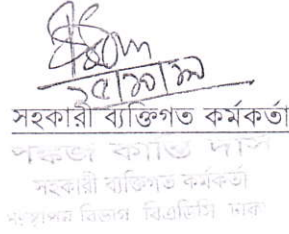 ২৫/১০/১৯
সহকারী ব্যক্তিগত কর্মকর্তা
পঙ্কজ কান্তি দাস
সহকারী ব্যক্তিগত কর্মকর্তা
সংস্থাপন বিভাগ বিএডিসি ঢাকা